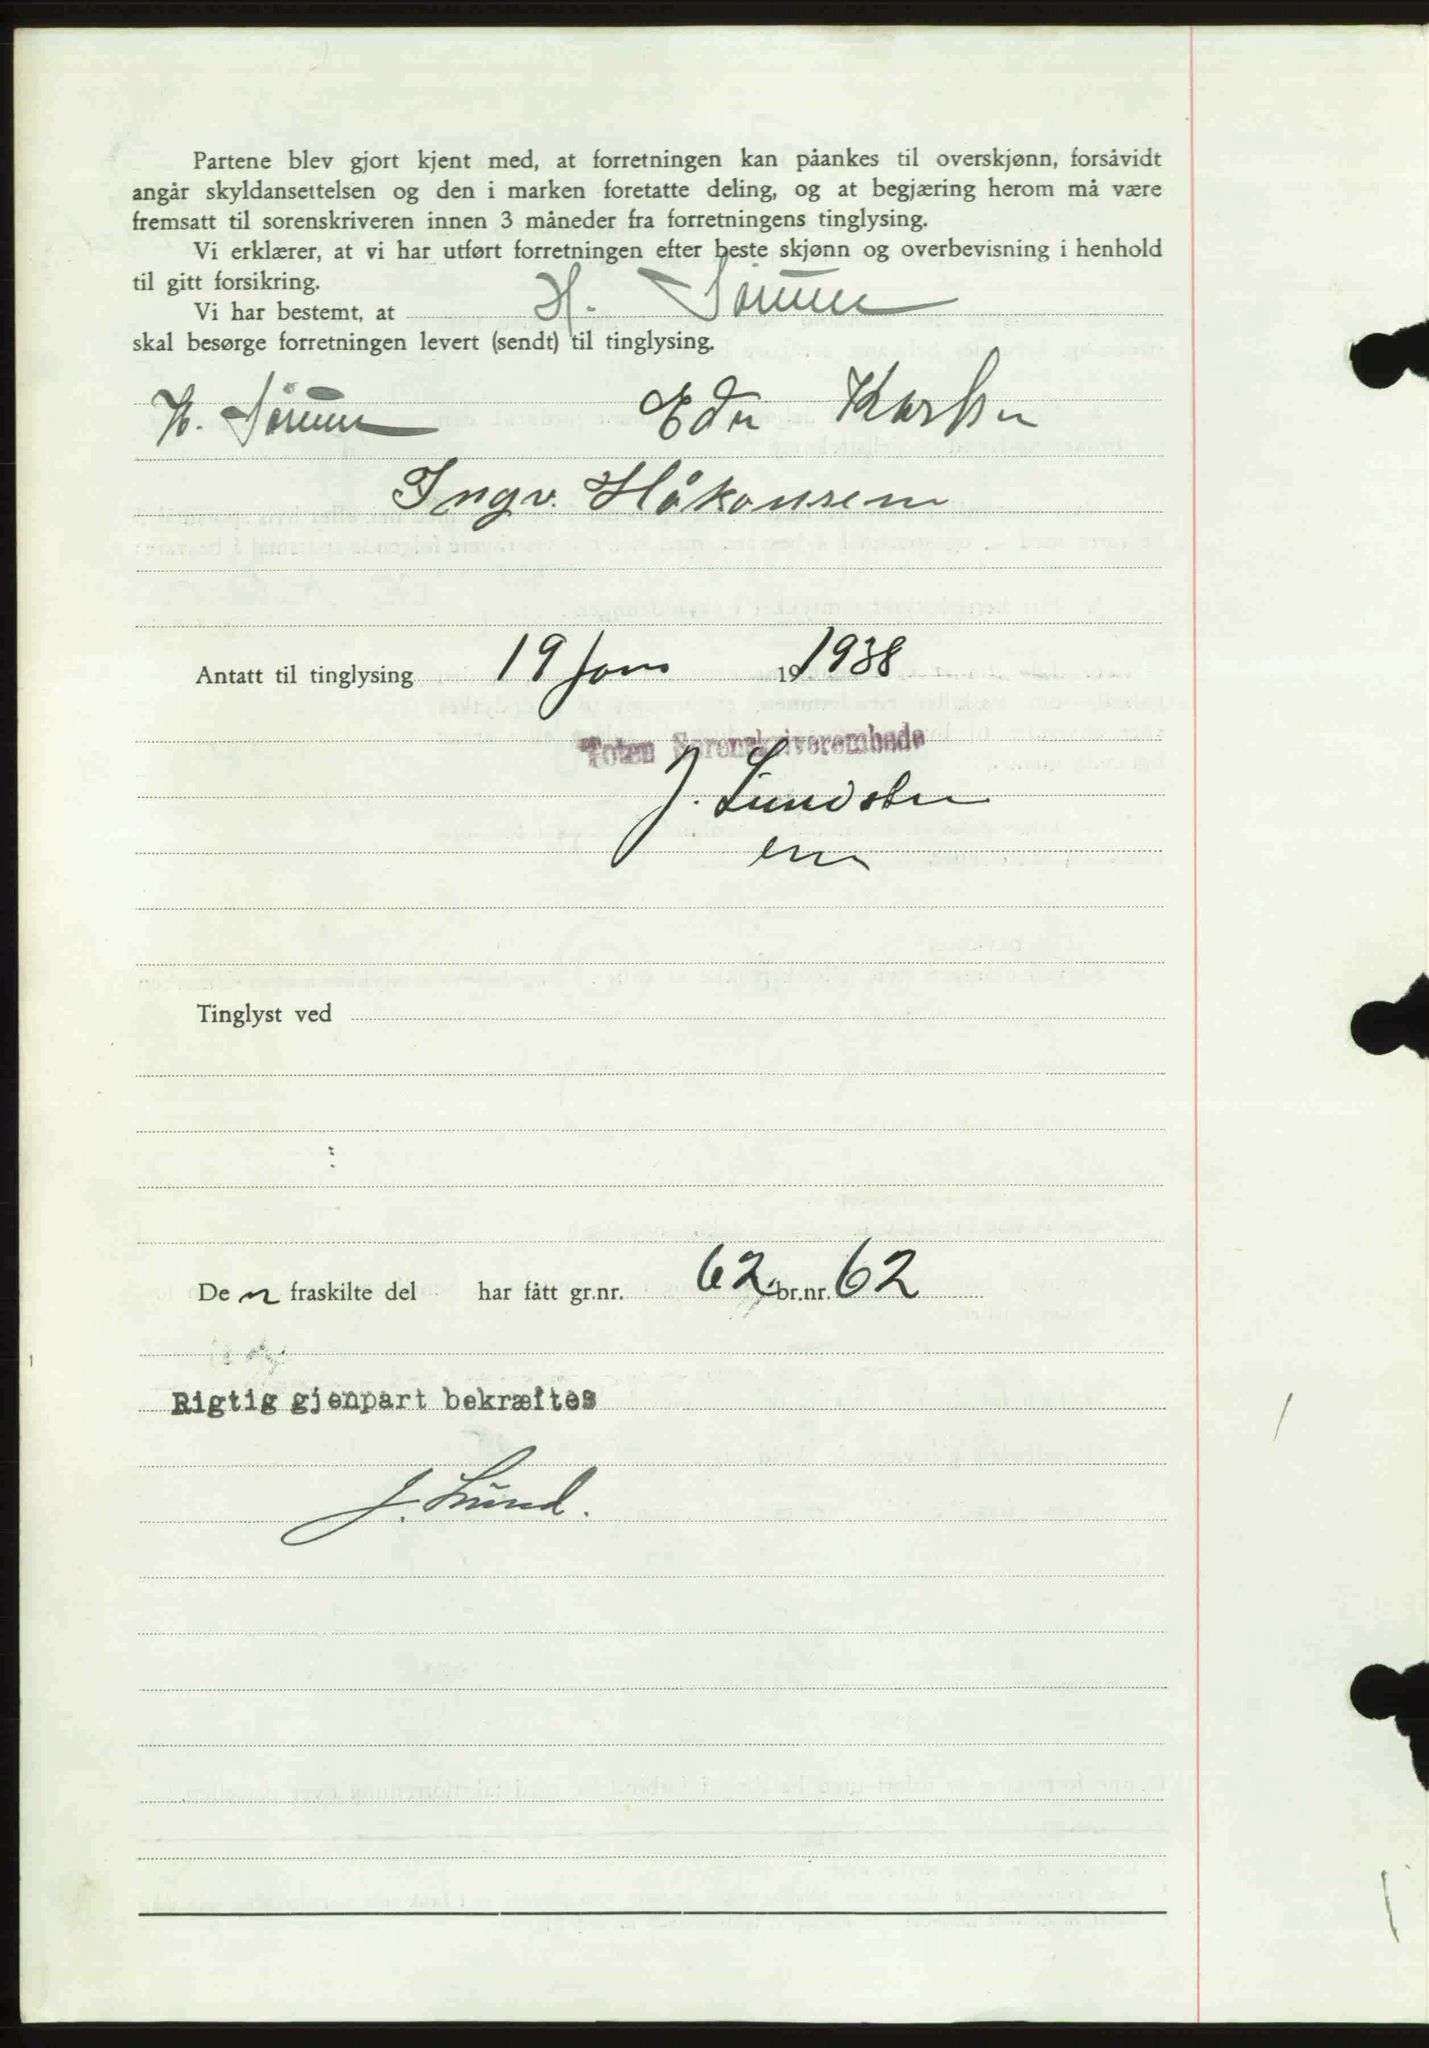 Partene blev gjort kjent med, at forretningen kan påankes til overskjønn, forsåvidt
angår skyldansettelsen og den i marken foretatte deling, og at begjæring herom må være
fremsatt til sorenskriveren innen 3 måneder fra forretningens tinglysing.
Vi erklærer, at vi har utført forretningen efter beste skjønn og overbevisning i henhold
til gitt forsikring.
Vi har bestemt, at H. Sørum
skal besørge forretningen levert (sendt) til tinglysing.
H. Sørum Edv Karlsen
Ingv. Håkonsen
Antatt til tinglysing 19 jan 19 1938
Toten Sorenskriverembede
J. Lund
Tinglyst ved
De n fraskilte del har fått gr.nr. 62 br.nr. 62
Rigtig gjenpart bekræftes
J. Lund.